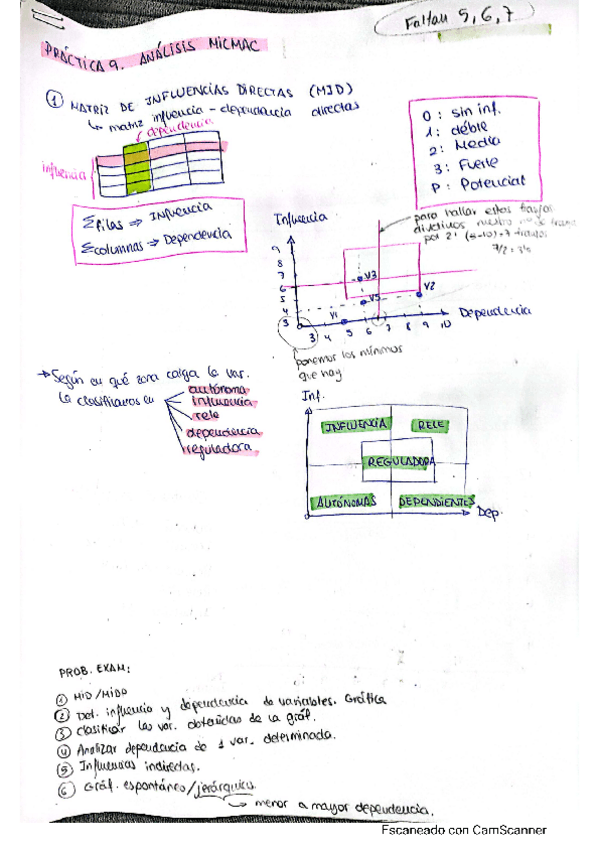 Faltan 5, 6, 7
PRÁCTICA 9. ANÁLISIS MICMAC
① MATRIZ DE INFLUENCIAS DIRECTAS (MID)
↳ matriz influencia - dependencia directas
dependencia
influencia
0 : sin inf.
1 : débil
2 : Media
3 : Fuerte
P : Potencial
Σfilas ⇒ Influencia
Σcolumnas ⇒ Dependencia
Influencia
para hallar estos trazos
por 2!
7/2 = 3'5
9
8
7
6
5
4
3
V3
V2
V5
V1
3 4 5 6 7 8 9 10
Dependencia
ponemos los mínimos
que hay
→ Según en qué zona caiga la var.
la clasificamos en
autónoma
influencia
rele
dependencia
reguladora
Inf.
INFLUENCIA
RELE
REGULADORA
AUTÓNOMAS
DEPENDIENTES
Dep.
PROB. EXAM:
① MID/MIDP
② Det. influencia y dependencia de variables. Gráfica
③ Clasificar las var. obtenidas de la gráf.
④ Analizar dependencia de 1 var. determinada.
⑤ Influencias indirectas.
⑥ Gráf. espontáneo/jerárquico
↳ menor a mayor dependencia.
Escaneado con CamScanner